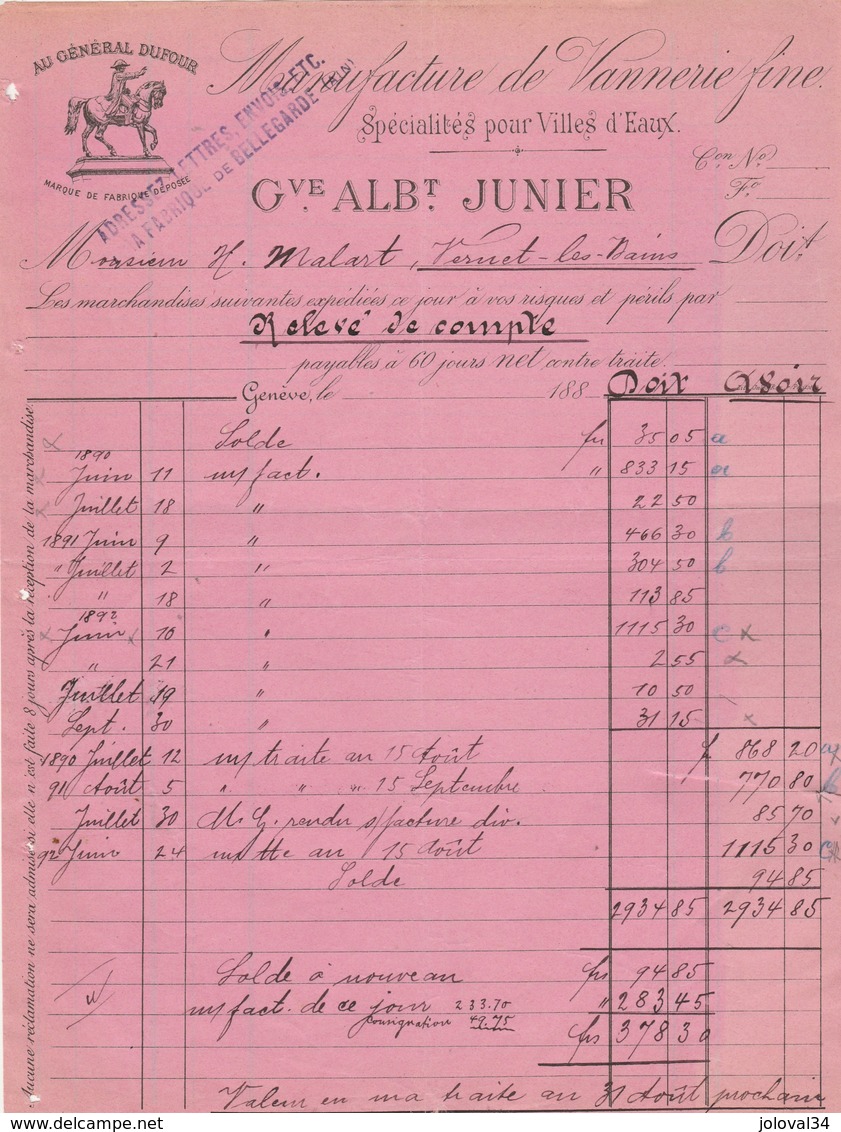 AU GÉNÉRAL DUFOUR
MARQUE DE FABRIQUE DÉPOSÉE
ADRESSEZ LETTRES, ENVOIS, ETC.
A FABRIQUE DE BELLEGARDE (AIN)
Manufacture de Vannerie fine.
Spécialités pour Villes d'Eaux.
Con. No.
Fo.
GVE ALBT. JUNIER
Monsieur H. Malart, Vernet-les-Bains Doit
Les marchandises suivantes expédiées ce jour à vos risques et périls par
Relevé de compte
payables à 60 jours net contre traite.
Genève, le 188 Doit Avoir
Solde frs 35 05 a
1890
Juin 11 n/ fact. " 833 15 a
Juillet 18 " 22 50
1891 Juin 9 " 466 30 b
" Juillet 2 " 304 50 b
" 18 " 113 85
1892
Juin 10 " 1115 30 c x
" 21 " 2 55 x
Juillet 19 " 10 50
Sept. 30 " 31 15 x
1890 Juillet 12 n/ traite au 15 Août f 868 20 a
91 Août 5 " " " 15 Septembre 770 80 b
Juillet 30 M. G. rendu s/facture div. 85 70
92 Juin 24 n/ tte au 15 Août 1115 30 c
Solde 94 85
2934 85 2934 85
Solde à nouveau frs 94 85
n/ fact. de ce jour 233.70 " 283 45
consignation 49.75
frs 378 30
Valeur en ma traite au 31 Août prochain
Aucune réclamation ne sera admise si elle n'est faite 8 jours après la réception de la marchandise.
delcampe.net
joloval34